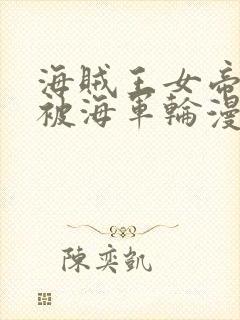 海賊王女帝
被海軍輪漫
陳奕凱